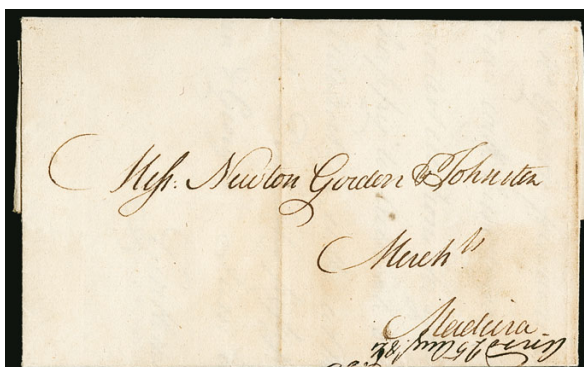 Messrs. Newton Gordon & Johnston
Merchts
Madeira